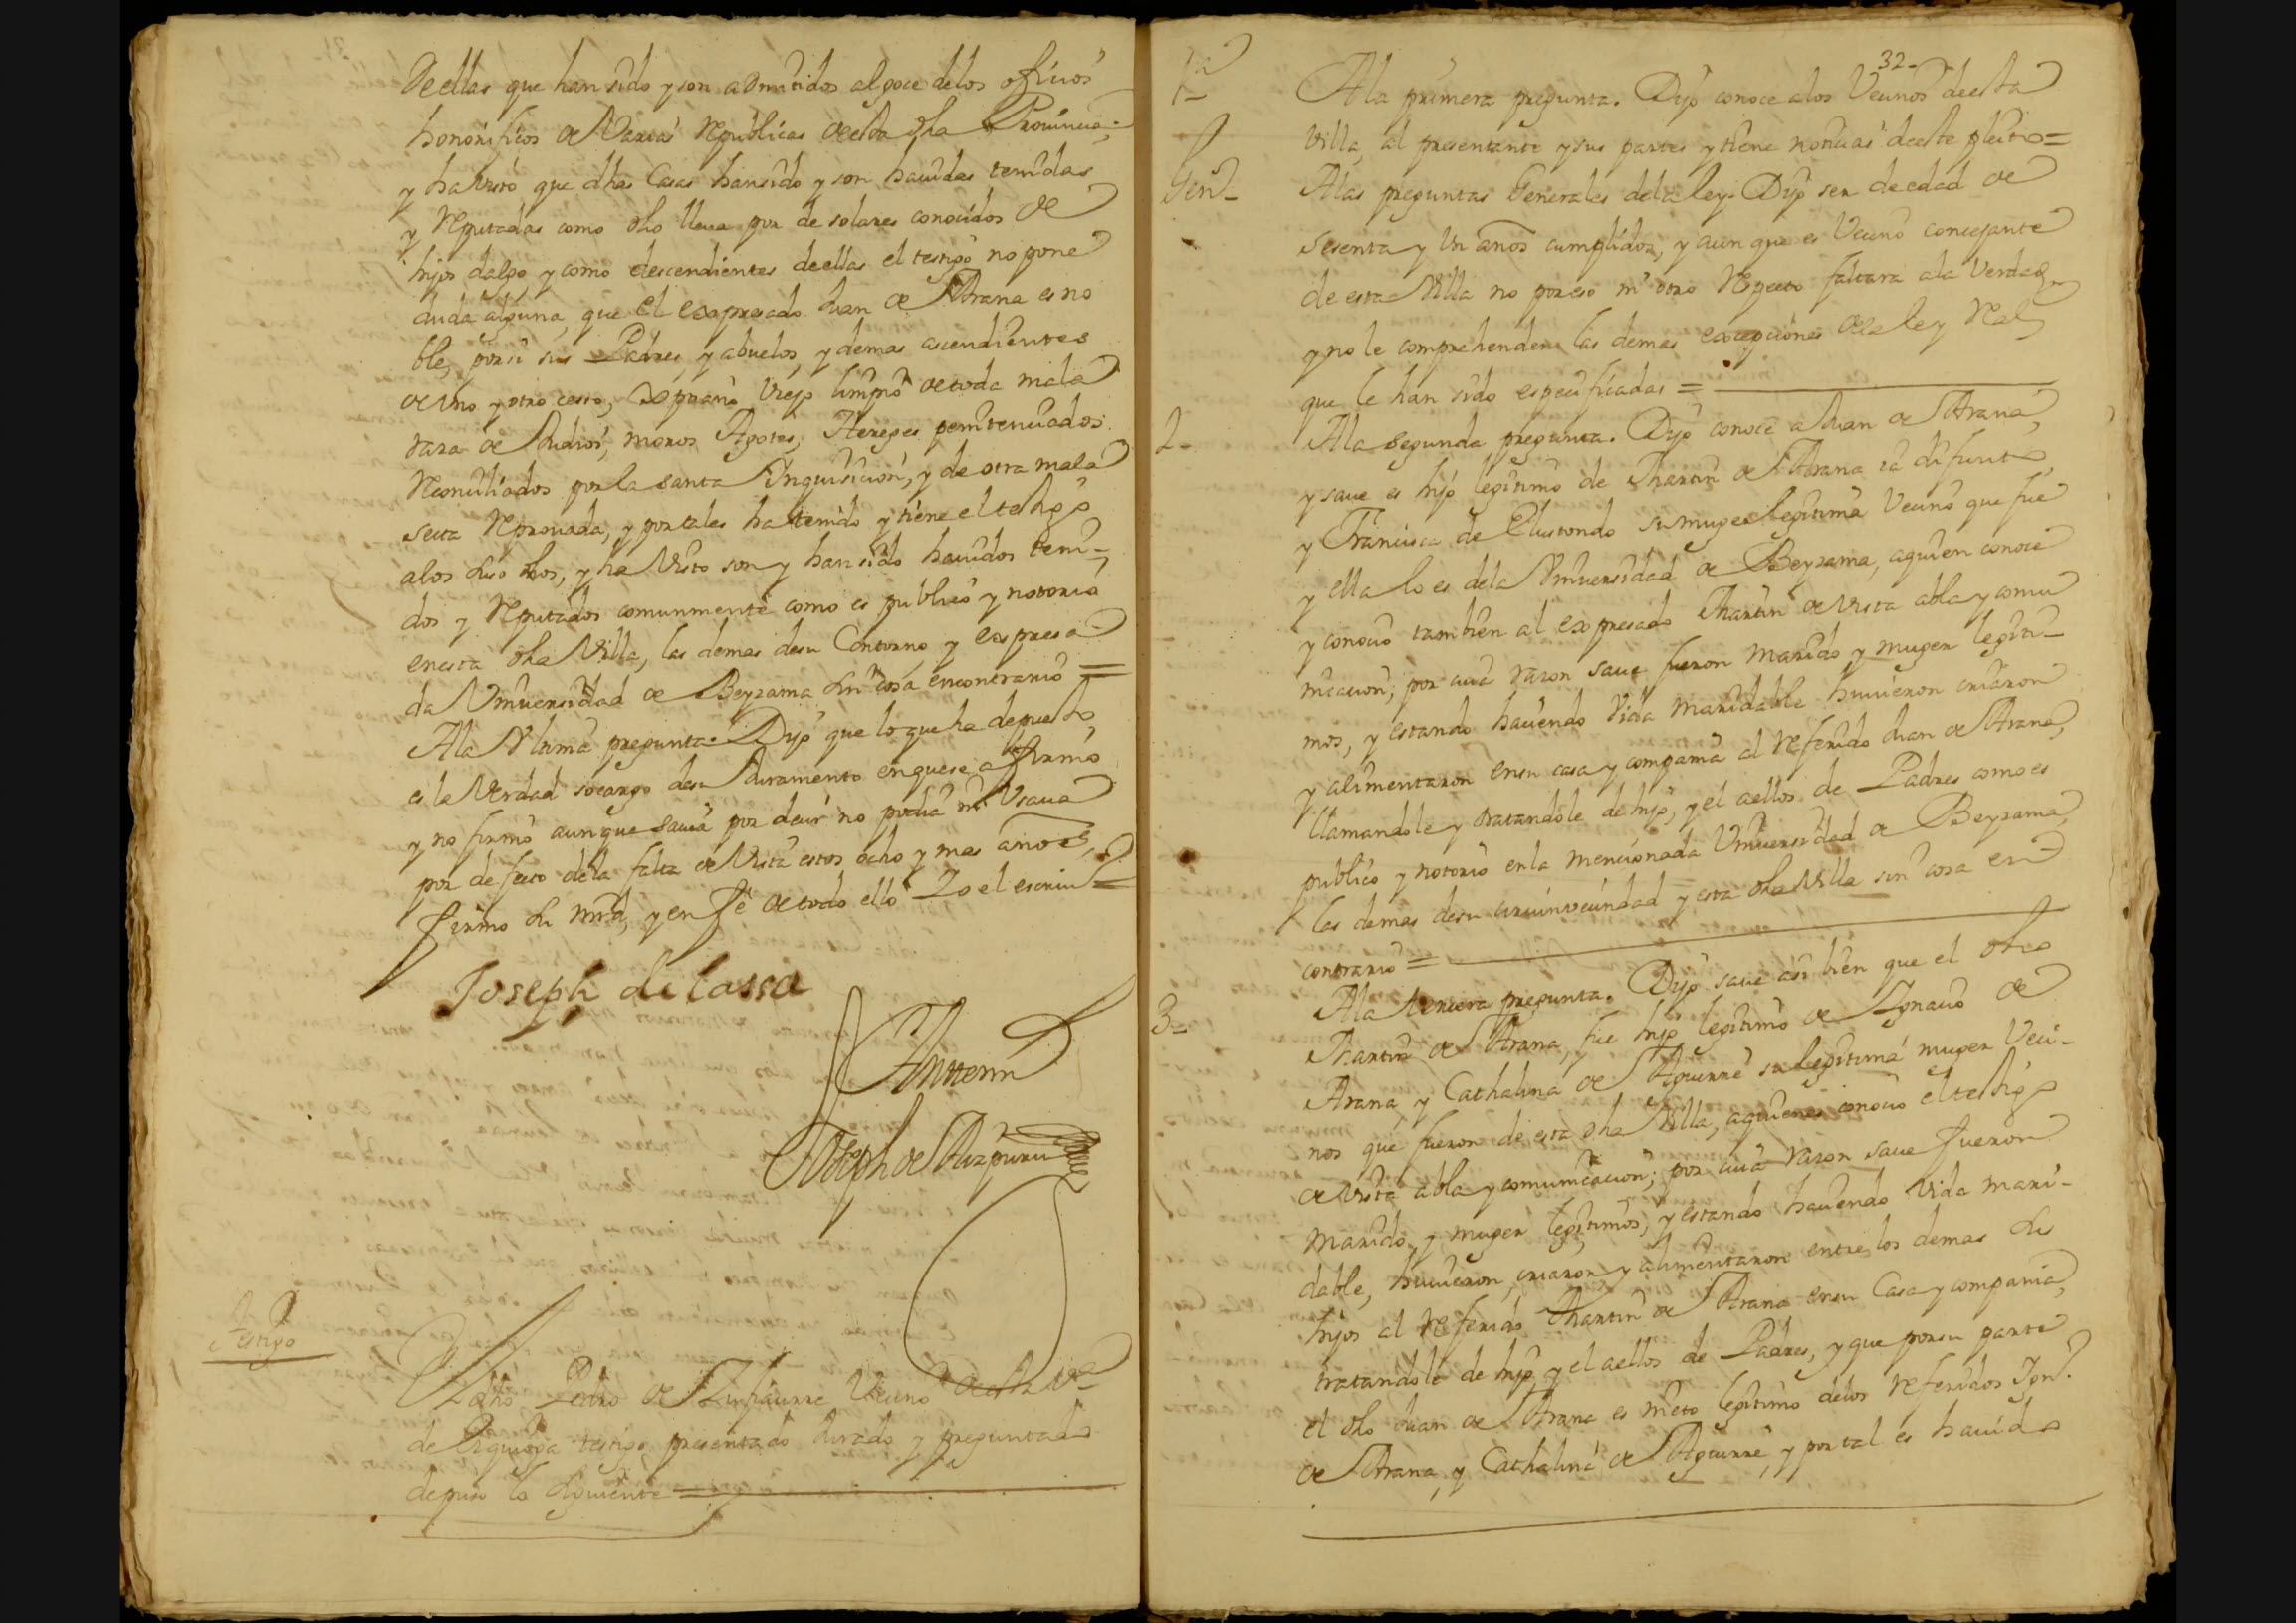 de ellas que han sido y son admitidos al goce de los ofiçios
honorificos de Varias Republicas de esta dha Provincia,
y ha visto que dhas Casas han sido y son havidas tenidas
y Reputadas como dho lleva por de solares conocidos de
hijos dalgo, y como descendientes de ellas el testigo no pone
duda alguna, que el expresado Juan de Arana es no
ble, por si sus Padres, y abuelos, y demas ascendientes
de uno y otro cesto, xpiano viejo limpio de toda mala
raza de Judios, moros Agotes, Hereges penitenciados
Reconciliados por la santa Inquisicion, y de otra mala
secta Reprouada, y por tales ha tenido y tiene el testigo
a los suso dhos, y ha visto son y han sido hauidos teni-
dos y Reputados comunmente como es publico y notorio
en esta dha Villa, las demas de su Contorno y expresa
da Vniuersidad de Beyzama sin cosa en contrario =
A la Vltima pregunta. Dijo que lo que ha depuesto
es la Verdad socargo de su Juramento en que se afirmó
y no firmó aunque sauia por decir no podia ni Vsaua
por defecto de la falta de Vista estos ocho y mas años,
firmo su mrd, y en fe de todo ello Yo el escriuº =
Joseph de lassa
Ante mi
Joseph de Aizpuru
Testigo
El dho Pedro de Vecino de esta Vª
de testigo presentado Jurado y preguntado
depuso lo siguiente =
32-
1ª
A la primera pregunta. Dijo conoce a los Vecinos de esta
Villa, al presentante y sus partes y tiene noticias de este pleito =
Gen-
A las preguntas Generales de la ley. Dijo ser de edad de
sesenta y Un años cumplidos, y aunque es Vecino concejante
de esta Villa no por eso ni otro Respecto faltara a la Verdad
y no le comprehenden las demas excepciones de la ley Real
que le han sido especificadas =
2-
A la segunda pregunta. Dijo conoce a Juan de Arana,
y saue es hijo legitimo de Martin de Arana ia difunto,
y Francisca de Eliustondo su muger legitima Vecino que fue
y ella lo es de la Vniuersidad de Beyzama, a quien conoce
y conocio tambien al expresado Martin de Vista abla y comu
nicacion; por cuia razon saue fueron marido y muger legiti-
mos, y estando haciendo Vida maridable huuieron criaron
y alimentaron en su casa y compania al referido Juan de Arana,
llamandole y tratandole de hijo, y el a ellos de Padres como es
publico y notorio en la mencionada Vniuersidad de Beyzama,
las demas de su circunvecindad y esta dha Villa sin cosa en
contrario =
3-
A la tercera pregunta. Dijo saue asi bien que el dho
Martin de Arana, fue hijo legitimo de Ignacio de
Arana, y Cathalina de Aguirre su legitima muger Veci-
nos que fueron de esta dha Villa, a quienes conocio el testigo
de Vista abla y comunicacion; por cuia razon saue fueron
marido, y muger legitimos, y estando haciendo Vida mari-
dable, huuieron, criaron y alimentaron entre los demas sus
hijos al referido Martin de Arana en su Casa y compania,
tratandole de hijo y el a ellos de Padres, y que por su parte
el dho Juan de Arana es nieto legitimo de los referidos Ignº
de Arana, y Cathalina de Aguirre, y por tal es hauido